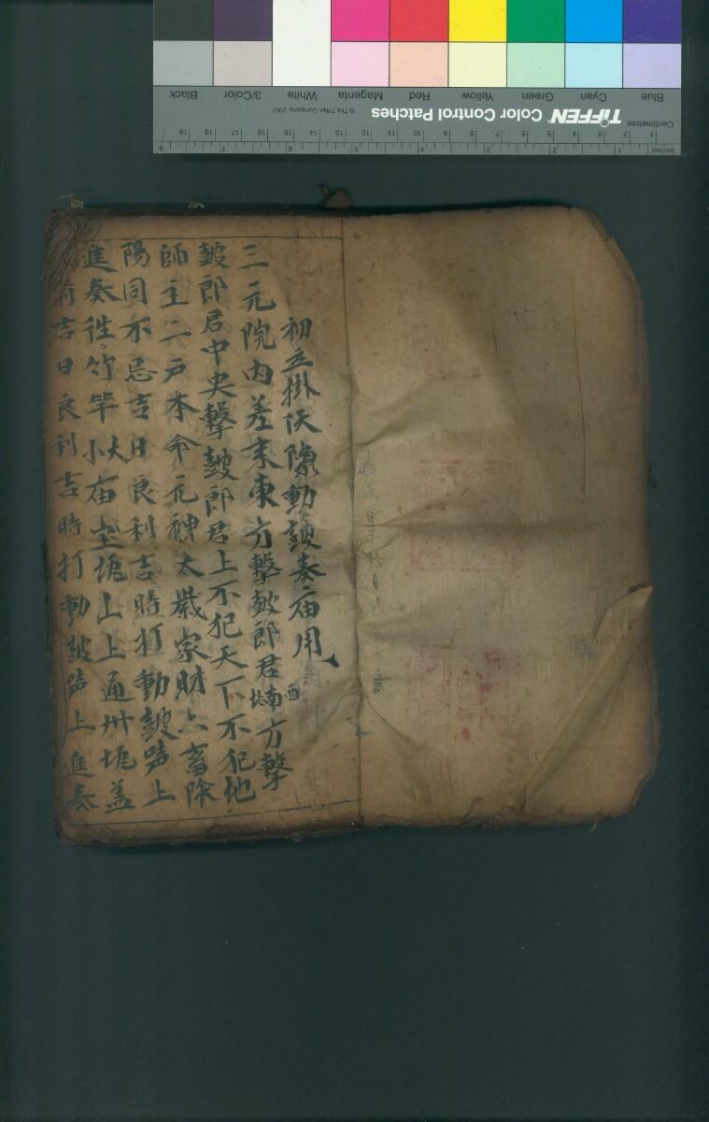 Blue Cyan Green Yellow Red Magenta White 3/Color Black
TIFFEN Color Control Patches © The Tiffen Company, 2007
Centimetres
初立掛伏隙動鼓奏庙用
三元院内差来東方擊鼓郎君南西北方擊
鼓郎君中央擊鼓郎君上不犯天下不犯地
師主二戸本命元神太歲家財六畜除
陽同不忌吉日良利吉時打動鼓声上
進奏徃竹竿大小庙壹垅山上通州垅盖
吉日良利吉時打動鼓声上進奏